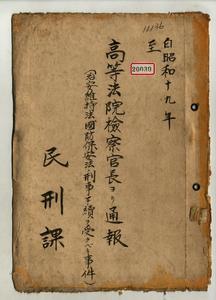 11136
自昭和十九年
至
20039
高等法院檢察官長ヨリ通報
(治安維持法國防保安法刑事手續ヲ受クベキ事件)
民刑課